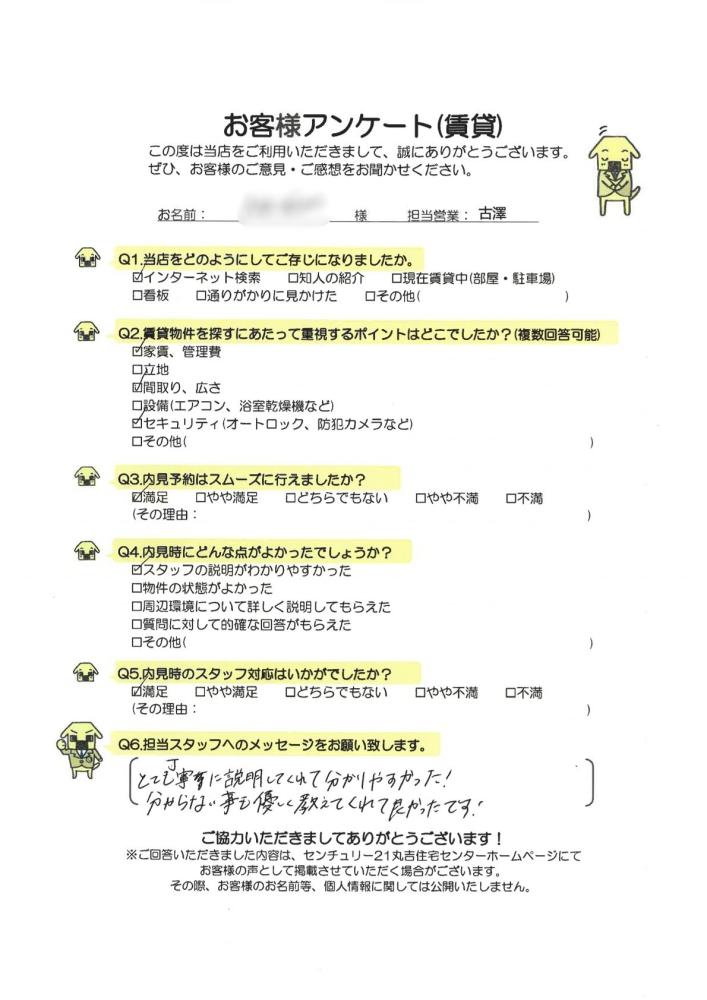 お客様アンケート(賃貸)
この度は当店をご利用いただきまして、誠にありがとうございます。
ぜひ、お客様のご意見・ご感想をお聞かせください。
お名前： 様 担当営業： 古澤
Q1.当店をどのようにしてご存じになりましたか。
☑インターネット検索 □知人の紹介 □現在賃貸中(部屋・駐車場)
□看板 □通りがかりに見かけた □その他( )
Q2.賃貸物件を探すにあたって重視するポイントはどこでしたか？(複数回答可能)
☑家賃、管理費
□立地
☑間取り、広さ
□設備(エアコン、浴室乾燥機など)
☑セキュリティ(オートロック、防犯カメラなど)
□その他( )
Q3.内見予約はスムーズに行えましたか？
☑満足 □やや満足 □どちらでもない □やや不満 □不満
(その理由： )
Q4.内見時にどんな点がよかったでしょうか？
☑スタッフの説明がわかりやすかった
□物件の状態がよかった
□周辺環境について詳しく説明してもらえた
□質問に対して的確な回答がもらえた
□その他( )
Q5.内見時のスタッフ対応はいかがでしたか？
☑満足 □やや満足 □どちらでもない □やや不満 □不満
(その理由： )
Q6.担当スタッフへのメッセージをお願い致します。
とても丁寧に説明してくれて分かりやすかった！
分からない事も優しく教えてくれて良かったです！
ご協力いただきましてありがとうございます！
※ご回答いただきました内容は、センチュリー21丸吉住宅センターホームページにて
お客様の声として掲載させていただく場合がございます。
その際、お客様のお名前等、個人情報に関しては公開いたしません。